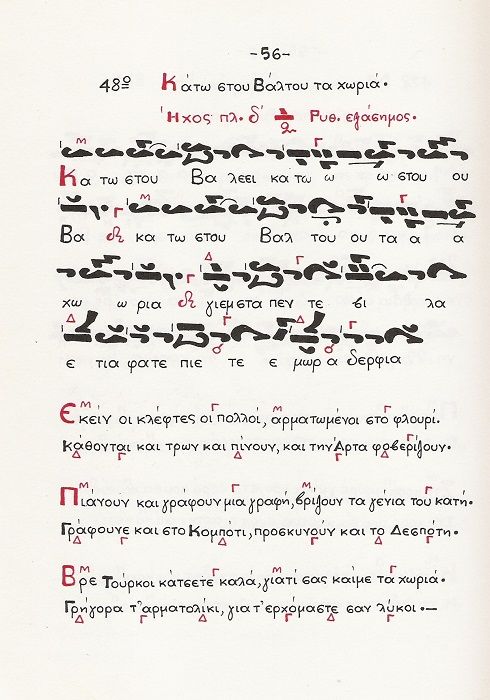 -56-
48ο Κάτω στου Βάλτου τα χωριά.
Ήχος πλ. δ' Ρυθ. εξάσημος.
Κα τω στου Βα λεει κα τω ω ω στου ου
Βα κα τω στου Βαλ του ου τα α α
χω ω ρια γιεμ στα πεν τε βι λα
ε τια φατε πιε τε ε μωρ α δερφια
Εκείν οι κλέφτες οι πολλοί, αρματωμένοι στο φλουρί.
Κάθονται και τρων και πίνουν, και την Άρτα φοβερίζουν.
Πιάνουν και γράφουν μια γραφή, βρίζουν τα γένια του κατή.
Γράφουνε και στο Κομπότι, προσκυνούν και το Δεσπότη.
Βρε Τούρκοι κάτσετε καλά, γιατί σας καίμε τα χωριά.
Γρήγορα τ' αρματολίκι, για τ' ερχόμαστε σαν λύκοι.—